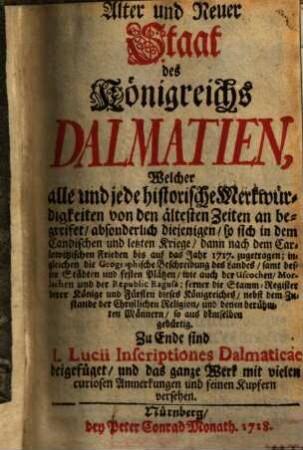 Alter und Neuer
Staat
des
Königreichs
DALMATIEN,
Welcher
alle und jede historische Merkwür-
digkeiten von den ältesten Zeiten an be-
greifet / absonderlich diejenigen / so sich in dem
Candischen und letzten Kriege / dann nach dem Car-
lowitzischen Frieden bis auf das Jahr 1717. zugetragen; in-
gleichen die Geographische Beschreibung des Landes / samt des-
sen Städten und festen Plätzen / wie auch der Uscochen / Mor-
lachen und der Republic Ragusa; ferner die Stamm-Register
derer Könige und Fürsten dieses Königreichs / nebst dem Zu-
stande der Christlichen Religion / und denen berühm-
ten Männern / so aus demselben
gebürtig.
Zu Ende sind
I. Lucii Inscriptiones Dalmaticæ
beigefüget / und das ganze Werk mit vielen
curiosen Anmerkungen und feinen Kupfern
versehen.
Nürnberg /
bey Peter Conrad Monath. 1718.